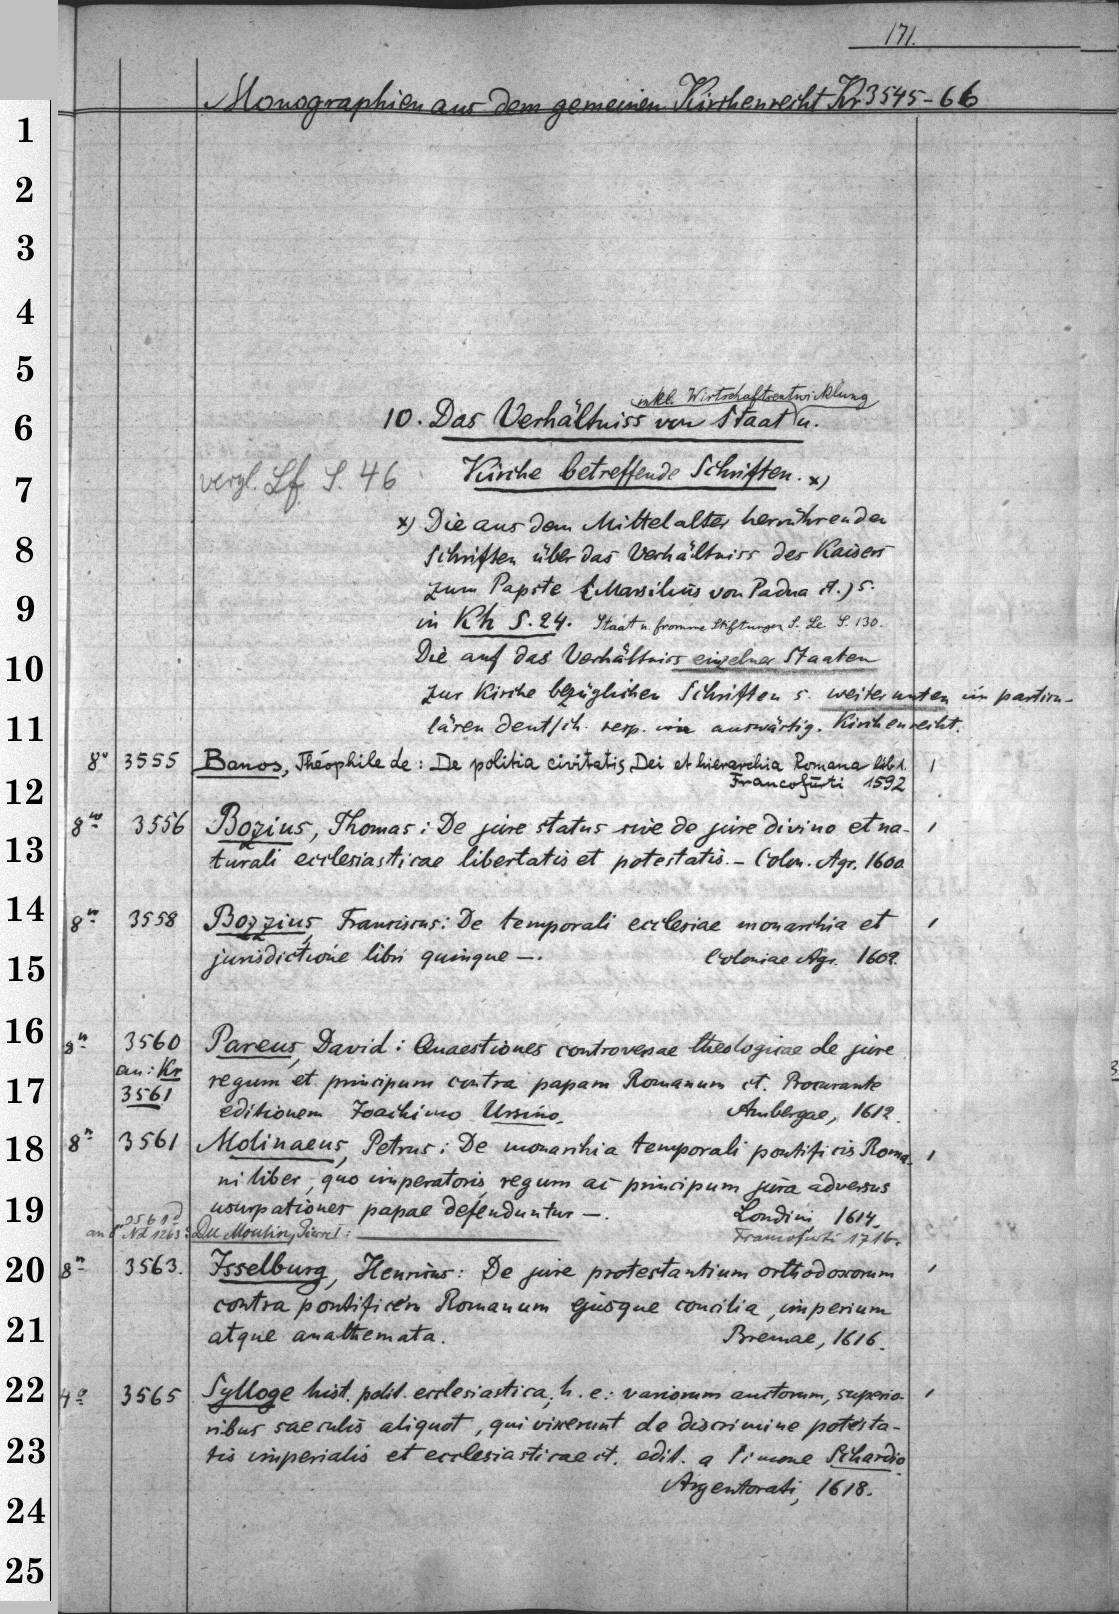 171.
Monographien aus dem gemeinen Kirchenrecht Kr 3545-66
1
2
3
4
5
inkl. Wirtschaftsentwicklung
6
10. Das Verhältniss von Staat u.
7
vergl. Lf S. 46
Kirche betreffende Schriften. x)
x) Die aus dem Mittelalter herrührenden
8
Schriften über das Verhältniss des Kaisers
zum Papste (Marsilius von Padua ct.) s.
9
in Kh S. 24. Staat u. fromme Stiftungen S. Le S. 130.
10
Die auf das Verhältniss einzelner Staaten
zur Kirche bezüglichen Schriften s. weiter unten im particu-
11
lären deutsch. resp. im auswärtig. Kirchenrecht.
8° 3555 Banos, Théophile de: De politia civitatis Dei et hierarchia Romana lib 1.
12
Francofurti 1592
8vo 3556 Bozius, Thomas: De jure status sive de jure divino et na-
13
turali ecclesiasticae libertatis et potestatis. - Colon. Agr. 1600
14
8vo 3558 Bozzius, Franciscus: De temporali ecclesiae monarchia et
15
jurisdictione libri quinque —. Coloniae Agr. 1602.
16
8vo 3560 Pareus, David: Quaestiones controversae theologicae de jure
an: Kr
17
3561
regum et principum contra papam Romanum ct. Procurante
editionem Joachimo Ursino. Ambergae, 1612.
18
8vo 3561 Molinaeus, Petrus: De monarchia temporali pontificis Roma-
ni liber, quo imperatoris, regum ac principum jura adversus
19
usurpationes papae defenduntur —. Londini, 1614.
3561 a
an 8° Nd 1263: Du Moulin, Pierre: Francofurti 1716.
20
8vo 3563. Isselburg, Henricus: De jure protestantium orthodoxorum
contra pontificem Romanum ejusque concilia, imperium
21
atque anathemata. Bremae, 1616.
22
4° 3565 Sylloge hist. polit. ecclesiastica, h. e.: variorum auctorum, superio-
ribus saeculis aliquot, qui vixerunt de discrimine potesta-
23
tis imperialis et ecclesiasticae ct. edit. a Simone Schardio.
Argentorati, 1618.
24
25